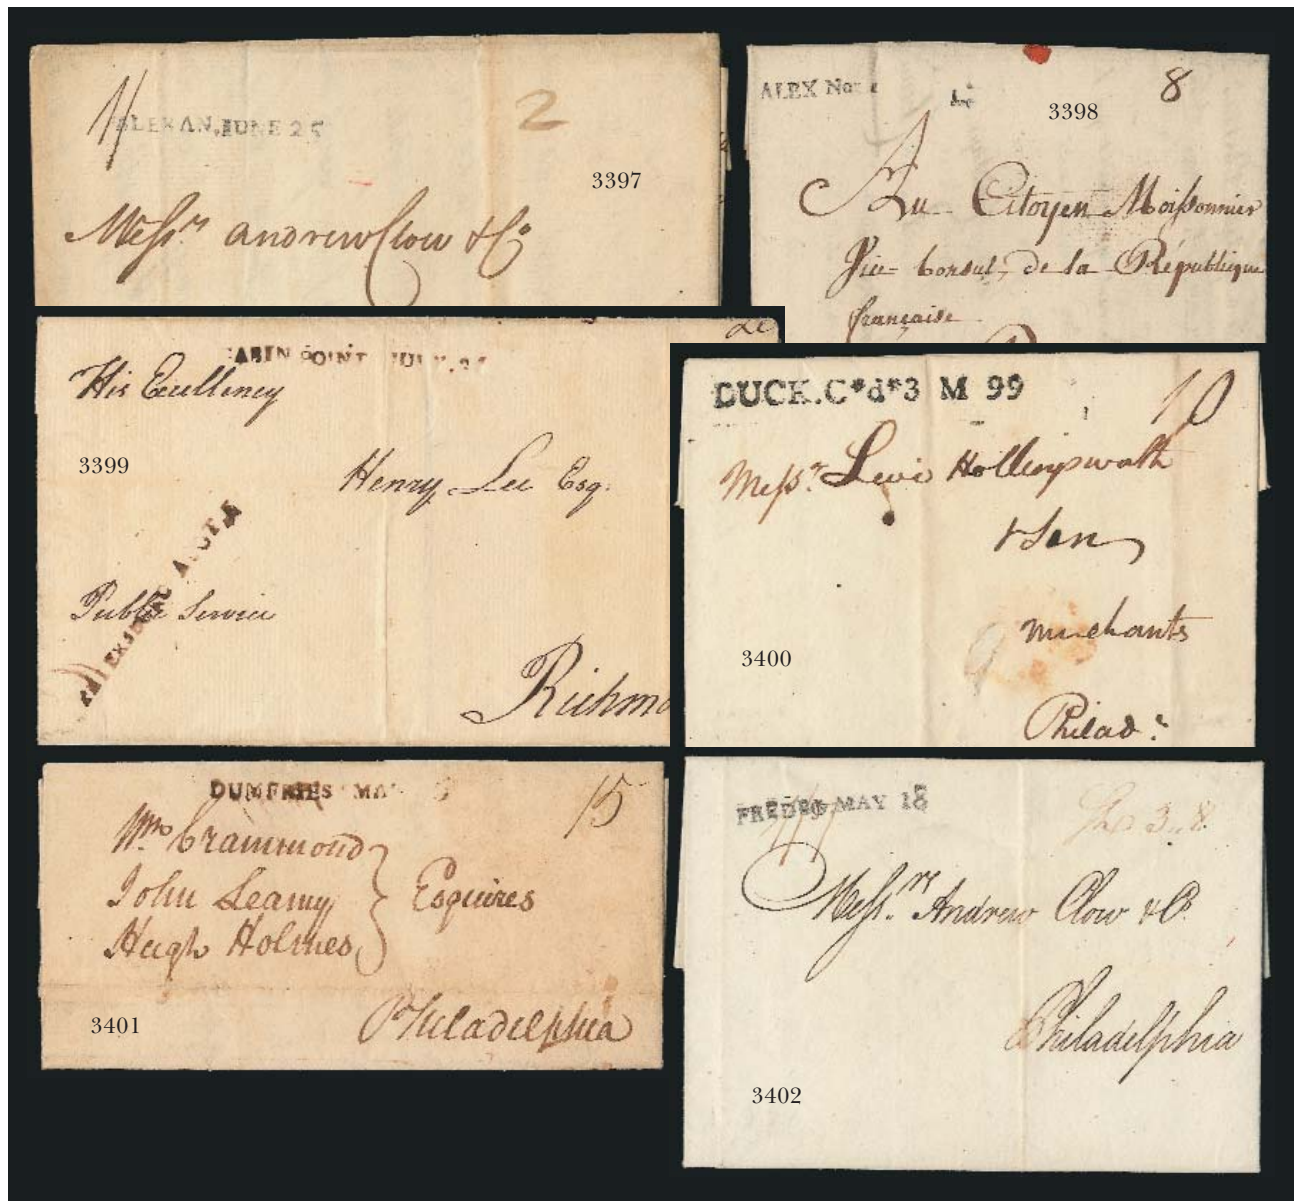 ALEXAN, JUNE 25
2
3397
Messrs. Andrew Clow & Co
ALEX Nov
8
3398
Au Citoyen Moissonnier
Vice-Consul de la République
française
ABIN POINT JULY. 2
His Excellency
3399
Henry Lee Esq.
Public Service
Richmo
DUCK.C*d*3 M 99
10
Messrs. Levi Hollingsworth
& Son
merchants
3400
Philada.
DUMFRIES MA
15
Wm. Crammond
John Leamy
Esquires
Hugh Holmes
3401
Philadelphia
FREDBG, MAY 18
3..8
Messrs. Andrew Clow & Co.
Philadelphia
3402